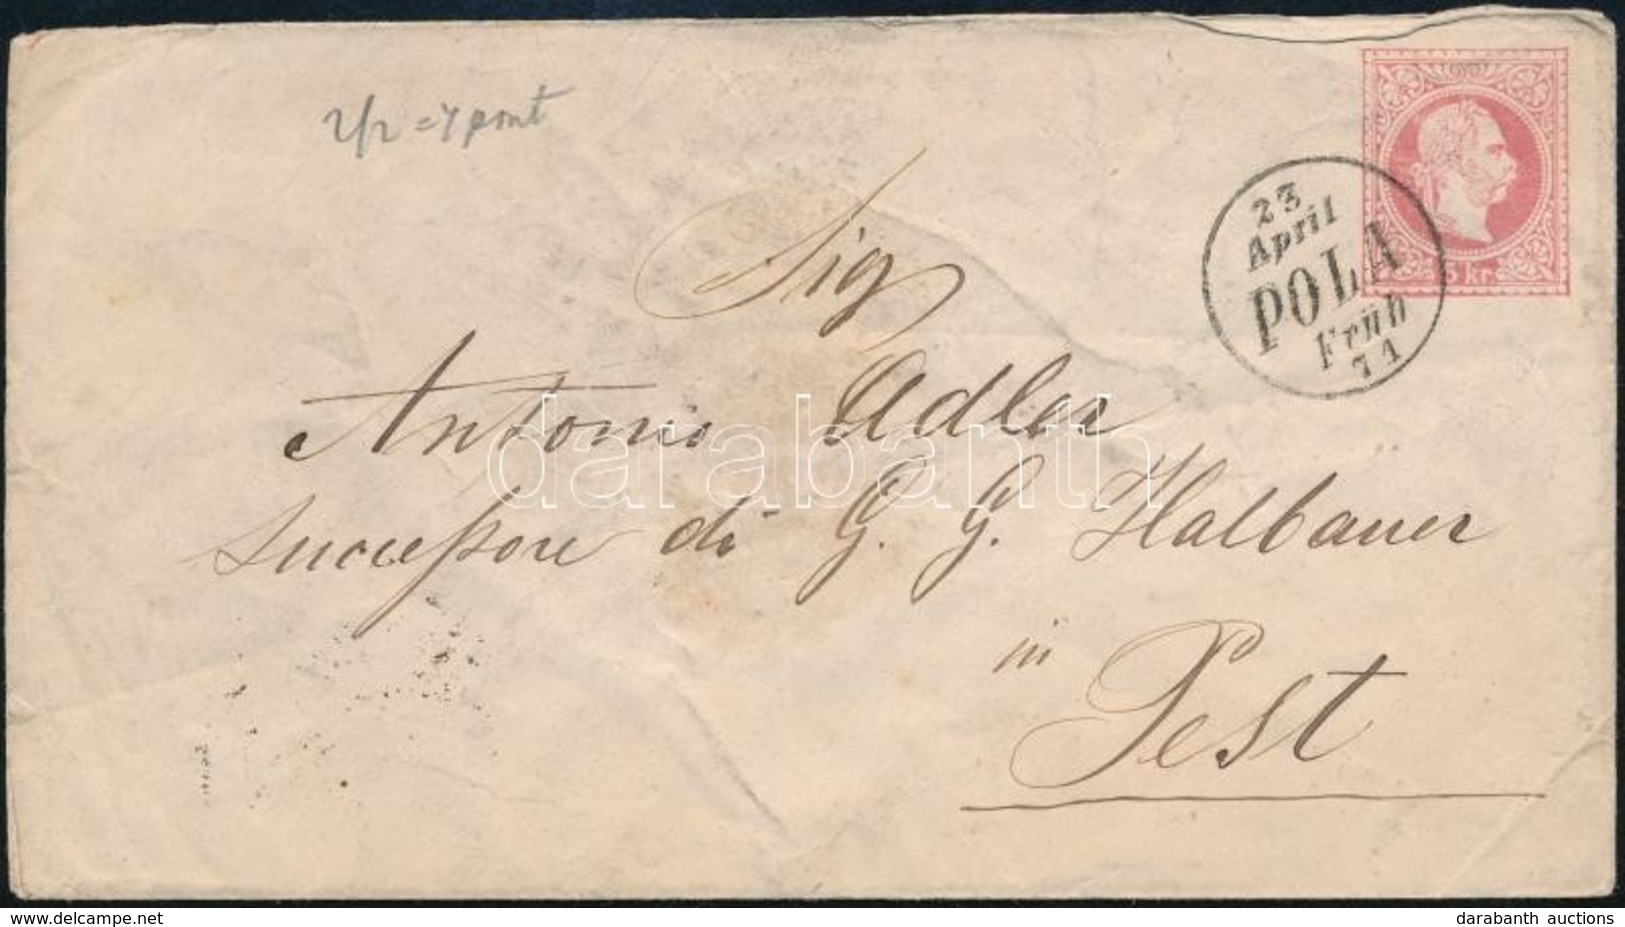 2/2 = 4 pont
23
April
POLA
Früh
71
5 kr.
Sig
Antonio Adler
successore di G. G. Halbauer
in
Pest
darabanth
Delcampe.net
darabanth auctions